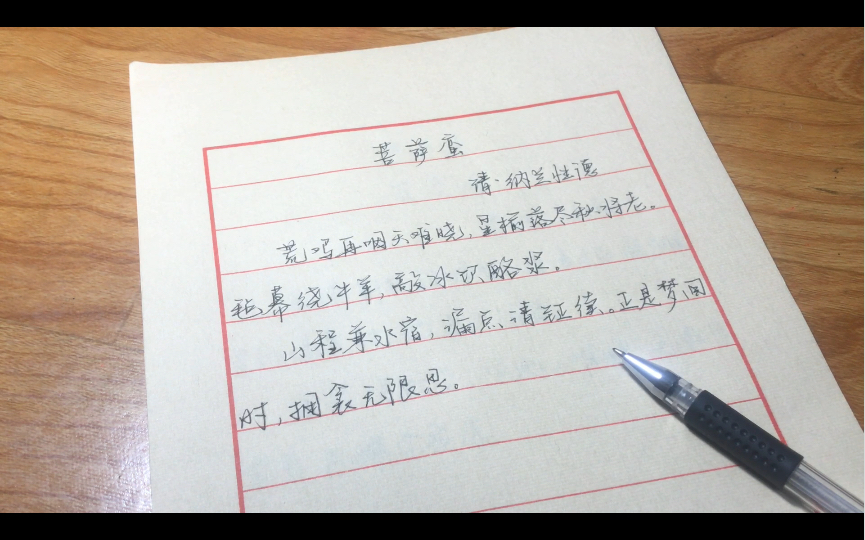 菩萨蛮
清·纳兰性德
荒鸡再咽天难晓,星榆落尽秋将老。
毡幕绕牛羊,敲冰饮酪浆。
山程兼水宿,漏点清钲续。正是梦回
时,拥衾无限思。